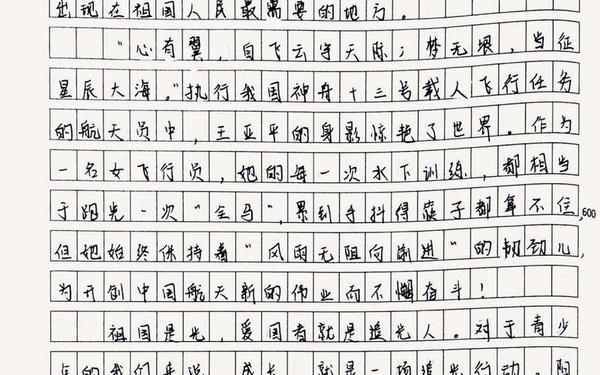 出现在祖国人民最需要的地方。
“心有翼，自飞云宇天际；梦无垠，当征
星辰大海。”执行我国神舟十三号载人飞行任务
的航天员中，王亚平的身影惊艳了世界。作为
一名女飞行员，她的每一次水下训练，都相当
于跑光一次“全马”，累到手抖得筷子都拿不住，
600
但她始终保持着“风雨无阻向前进”的韧劲儿，
为开创中国航天新的伟业而不懈奋斗！
祖国是光，爱国者就是追光人。对于青少
年的我们来说，成长，就是一场追光行动。